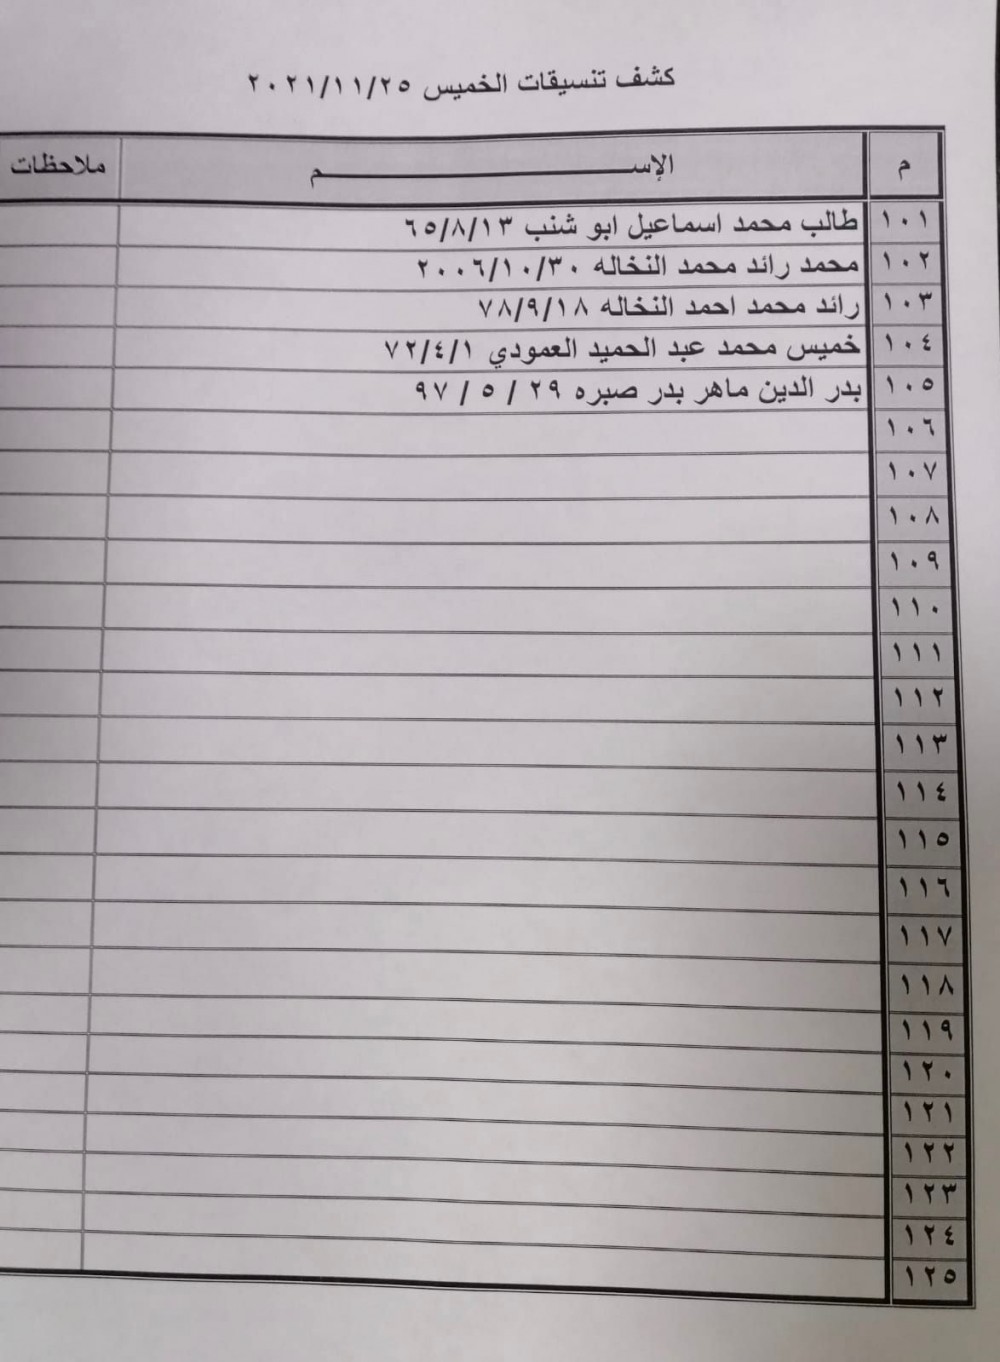 كشف تنسيقات الخميس ٢٠٢١/١١/٢٥
م الإســـــــــــــــــم ملاحظات
١٠١ طالب محمد اسماعيل ابو شنب ٦٥/٨/١٣
١٠٢ محمد رائد محمد النخاله ٢٠٠٦/١٠/٣٠
١٠٣ رائد محمد احمد النخاله ٧٨/٩/١٨
١٠٤ خميس محمد عبد الحميد العمودي ٧٢/٤/١
١٠٥ بدر الدين ماهر بدر صبره ٢٩ / ٥ / ٩٧
١٠٦
١٠٧
١٠٨
١٠٩
١١٠
١١١
١١٢
١١٣
١١٤
١١٥
١١٦
١١٧
١١٨
١١٩
١٢٠
١٢١
١٢٢
١٢٣
١٢٤
١٢٥